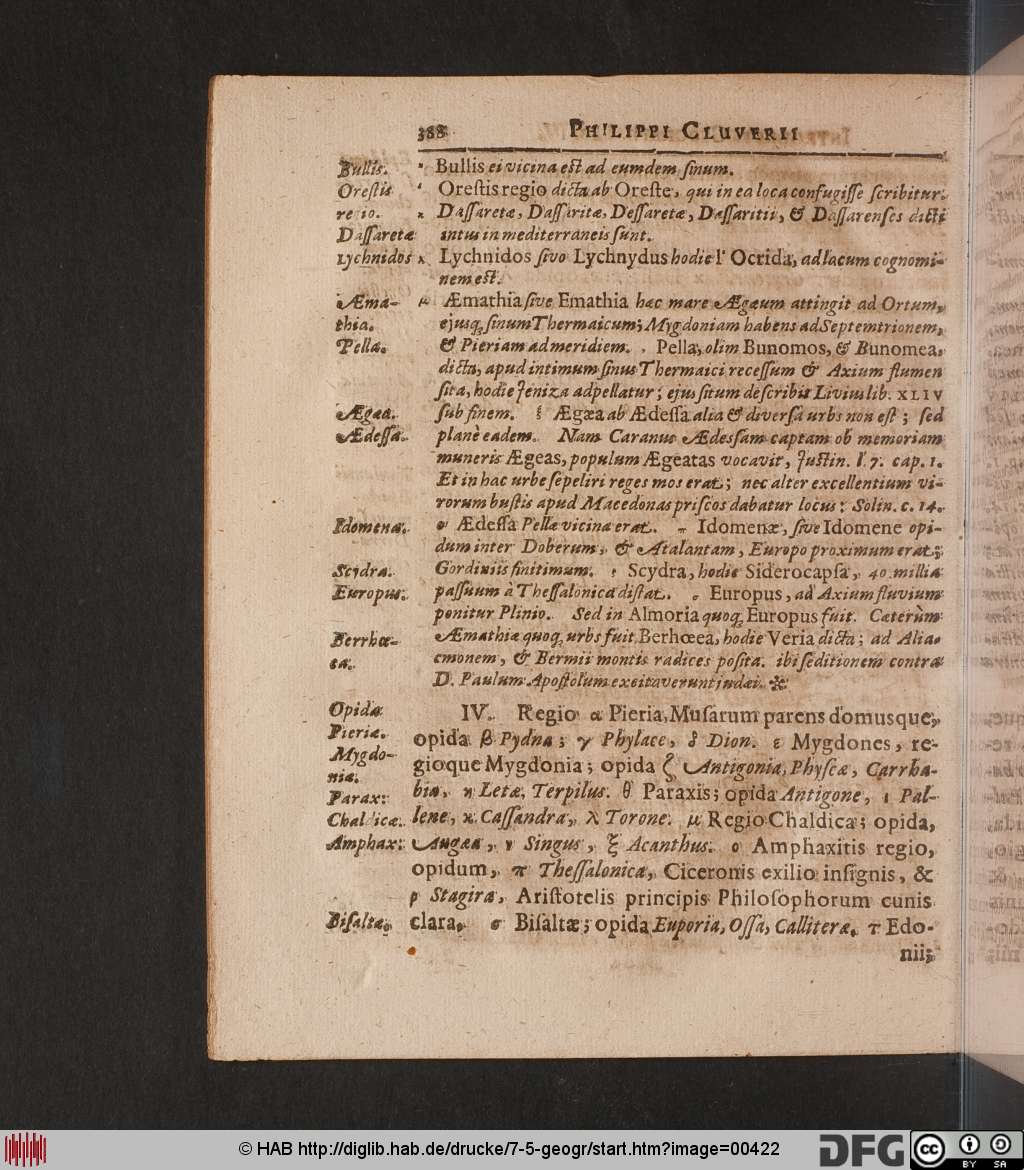 388 PHILIPPI CLUVERII
Bullis. Bullis ei vicina est ad eumdem sinum.
Orestis Orestis regio dicta ab Oreste, qui in ea loca confugisse scribitur.
regio. ϰ Dassaretæ, Dassaritæ, Dessaretæ, Dassaritii, & Dassarenses dicti
Dassaretæ intus in mediterraneis sunt.
Lychnidos λ Lychnidos sive Lychnydus hodie l' Ocrida, ad lacum cognomi-
nem est.
Æma- μ Æmathia sive Emathia hæc mare Ægæum attingit ad Ortum,
thia. ejusq; sinum Thermaicum; Mygdoniam habens ad Septemtrionem,
Pella. & Pieriam ad meridiem. Pella, olim Bunomos, & Bunomea,
dicta, apud intimum sinus Thermaici recessum & Axium flumen
sita, hodie Jeniza adpellatur; ejus situm describit Livius lib. XLIV
Ægæa. sub finem. ξ Ægæa ab Ædessa alia & diversa urbs non est; sed
Ædessa. planè eadem. Nam Caranus Ædessam captam ob memoriam
muneris Ægeas, populum Ægeatas vocavit, Justin. l. 7. cap. 1.
Et in hac urbe sepeliri reges mos erat; nec alter excellentium vi-
rorum bustis apud Macedonas priscos dabatur locus: Solin. c. 14.
Idomenæ. ο Ædessa Pellæ vicina erat. π Idomenæ, sive Idomene opi-
dum inter Doberum, & Atalantam, Europo proximum erat;
Scydra. Gordiniis finitimum. ρ Scydra, hodie Siderocapsa, 40 millia
Europus. passuum à Thessalonica distat. σ Europus, ad Axium fluvium
ponitur Plinio. Sed in Almoria quoq; Europus fuit. Cæterùm
Berrhœ- Æmathiæ quoq; urbs fuit Berhœea, hodie Veria dicta; ad Alia-
ea. cmonem, & Bermii montis radices posita. ibi seditionem contra
D. Paulum Apostolum excitaverunt judæi.
Opida IV. Regio α Pieria, Musarum parens domusque,
Pieriæ. opida β Pydna; γ Phylace, δ Dion. ε Mygdones, re-
Mygdo- gioque Mygdonia; opida ζ Antigonia, Physcæ, Carrha-
nia. bia, η Letæ, Terpilus. θ Paraxis; opida Antigone, ι Pal-
Parax:
Chaldicæ. lene, ϰ Cassandra, λ Torone. μ Regio Chaldica; opida,
Amphax: Augæa, ν Singus, ξ Acanthus. ο Amphaxitis regio,
opidum, π Thessalonica, Ciceronis exilio insignis, &
ρ Stagira, Aristotelis principis Philosophorum cunis
Bisaltæ, clara. σ Bisaltæ; opida Euporia, Ossa, Calliteræ. τ Edo-
nii;
© HAB http://diglib.hab.de/drucke/7-5-geogr/start.htm?image=00422 DFG cc BY SA